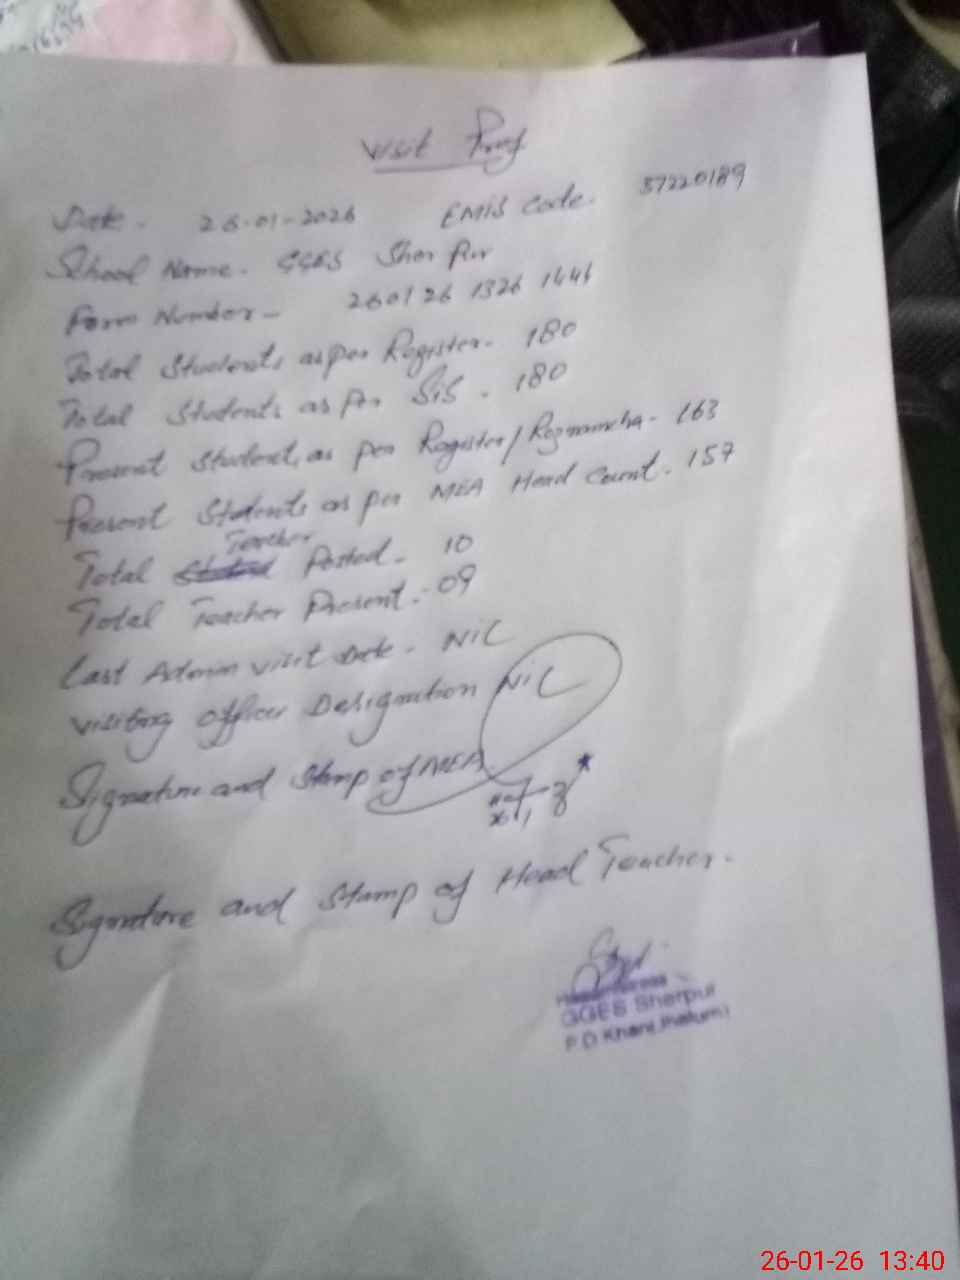 Visit Prof
Date - 26-01-2026 EMIS Code - 37220189
School Name - GGES Sher Pur
Form Number - 260126 1326 1446
Total Students as per Register - 180
Total Students as per SIS - 180
Present Student as per Register/Roznamcha - 163
Present Students as per MEA Head Count - 157
Total Teacher Posted - 10
Total Teacher Present - 09
Last Admin visit Date - NIL
Visiting officer Designation NIL
Signature and Stamp of MEA
Signature and Stamp of Head Teacher -
GGES Sherpur
P.D Khan (Jhelum)
26-01-26 13:40